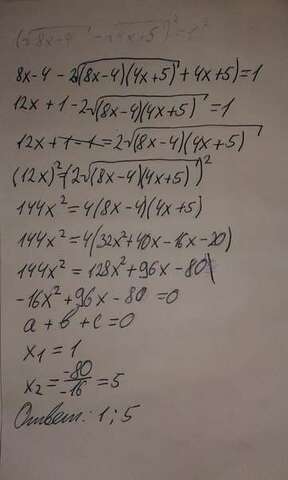 (√8x-4 - √4x+5)² = 1²
8x-4 - 2√(8x-4)(4x+5) + 4x+5) = 1
12x + 1 - 2√(8x-4)(4x+5) = 1
12x + 1 - 1 = 2√(8x-4)(4x+5)
(12x)² = (2√(8x-4)(4x+5))²
144x² = 4(8x-4)(4x+5)
144x² = 4(32x² + 40x - 16x - 20)
144x² = 128x² + 96x - 80
-16x² + 96x - 80 = 0
a + b + c = 0
x₁ = 1
x₂ = -80/-16 = 5
Ответ: 1; 5